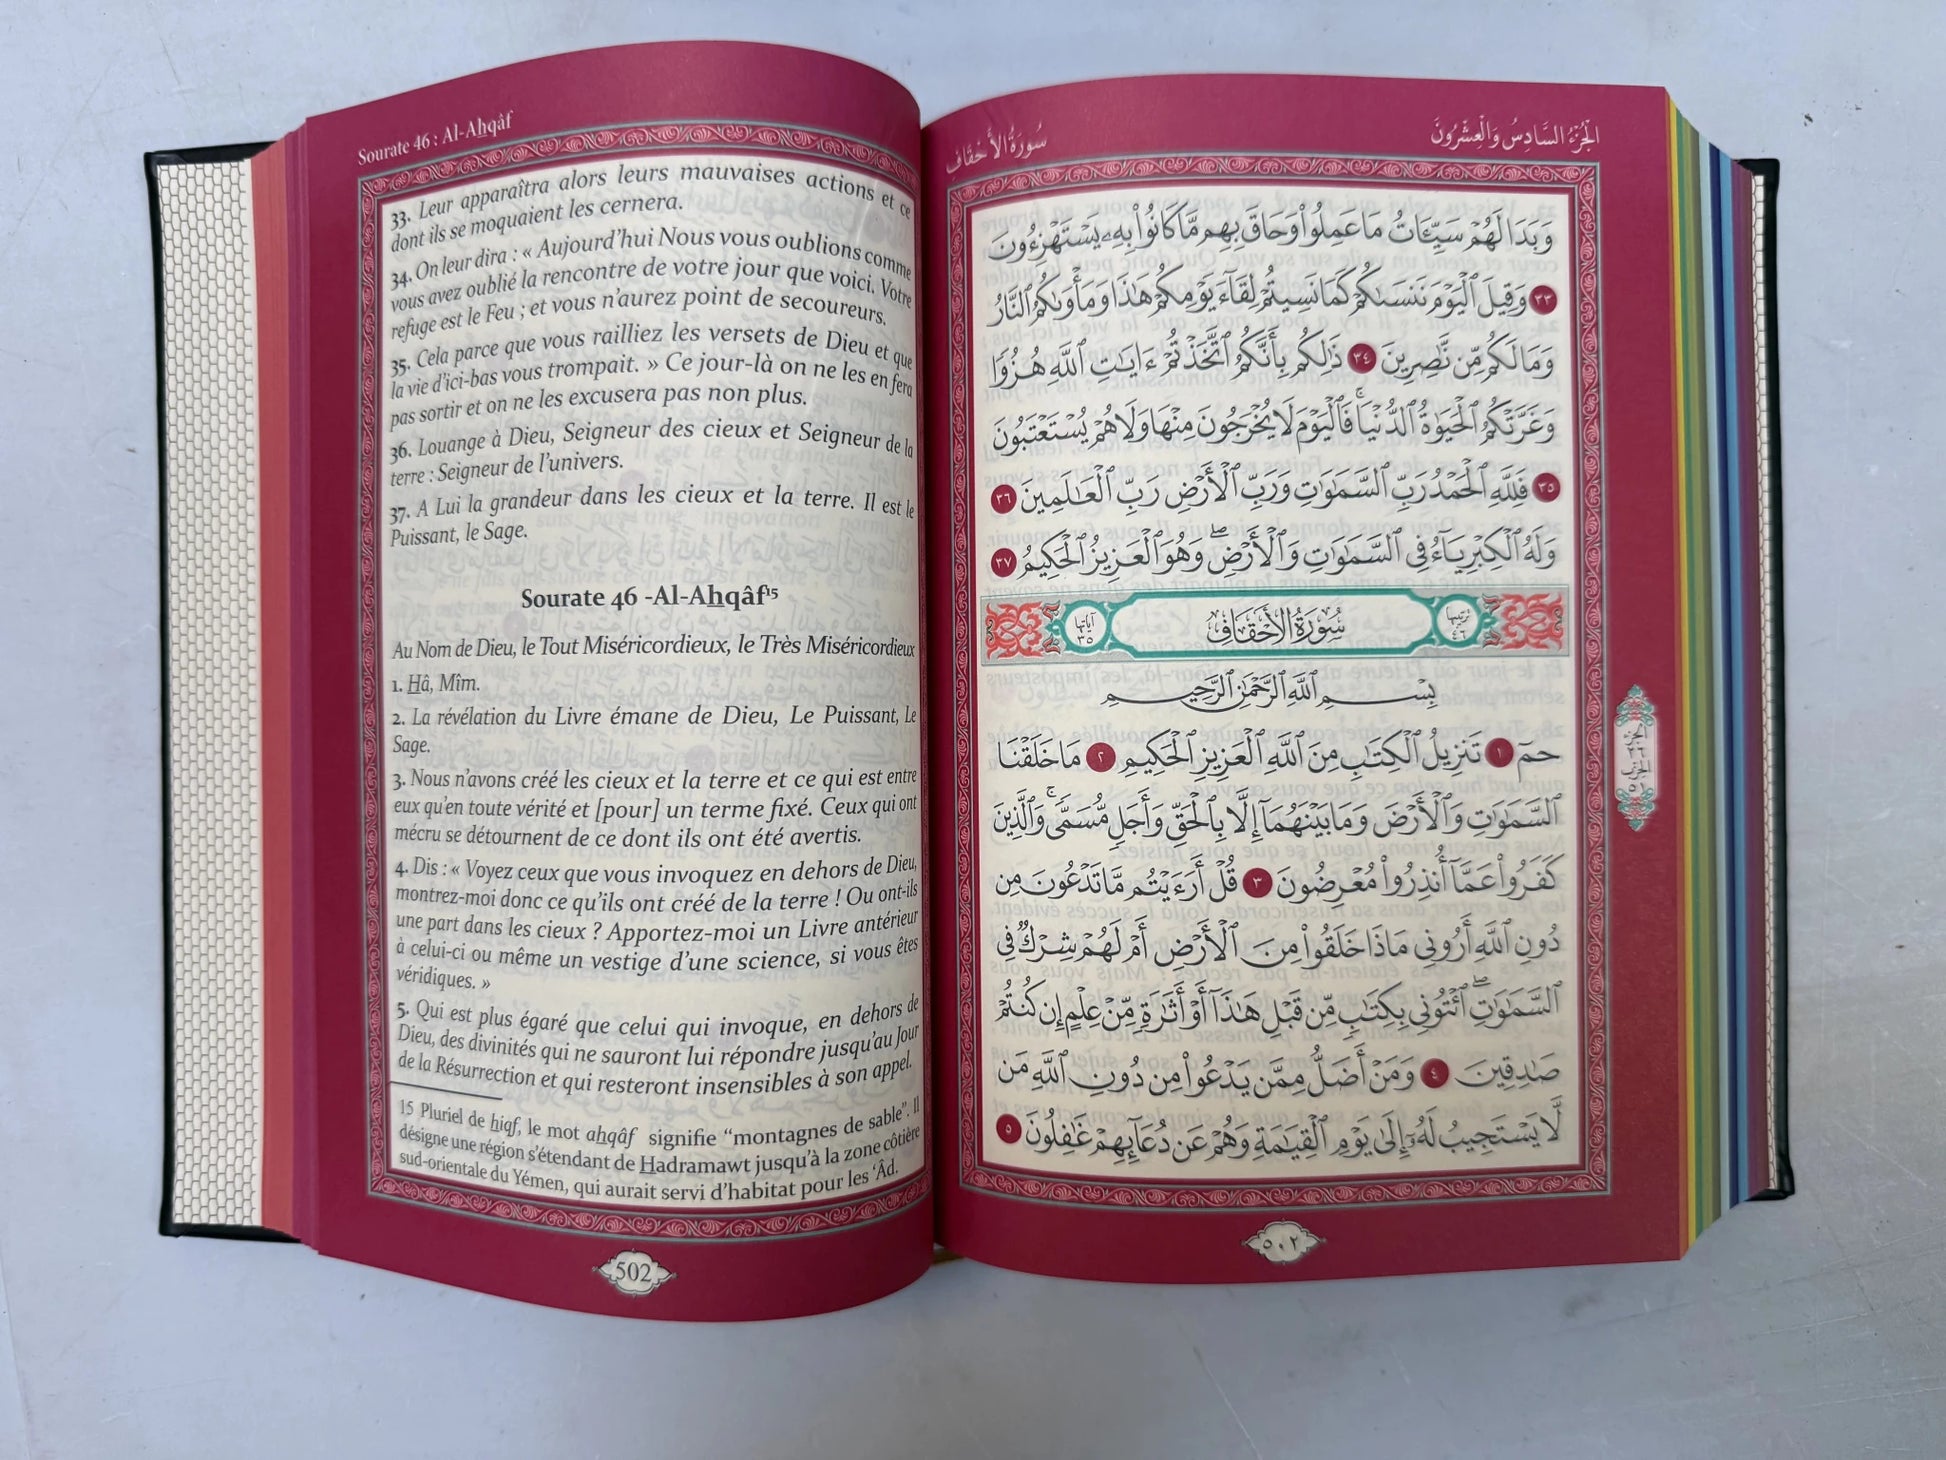 Sourate 46 : Al-Ahqâf
33. Leur apparaîtra alors leurs mauvaises actions et ce
dont ils se moquaient les cernera.
34. On leur dira : « Aujourd’hui Nous vous oublions comme
vous avez oublié la rencontre de votre jour que voici. Votre
refuge est le Feu ; et vous n’aurez point de secoureurs.
35. Cela parce que vous railliez les versets de Dieu et que
la vie d’ici-bas vous trompait. » Ce jour-là on ne les en fera
pas sortir et on ne les excusera pas non plus.
36. Louange à Dieu, Seigneur des cieux et Seigneur de la
terre : Seigneur de l’univers.
37. A Lui la grandeur dans les cieux et la terre. Il est le
Puissant, le Sage.
Sourate 46 -Al-Ahqâf15
Au Nom de Dieu, le Tout Miséricordieux, le Très Miséricordieux
1. Hâ, Mîm.
2. La révélation du Livre émane de Dieu, Le Puissant, Le
Sage.
3. Nous n’avons créé les cieux et la terre et ce qui est entre
eux qu’en toute vérité et [pour] un terme fixé. Ceux qui ont
mécru se détournent de ce dont ils ont été avertis.
4. Dis : « Voyez ceux que vous invoquez en dehors de Dieu,
montrez-moi donc ce qu’ils ont créé de la terre ! Ou ont-ils
une part dans les cieux ? Apportez-moi un Livre antérieur
à celui-ci ou même un vestige d’une science, si vous êtes
véridiques. »
5. Qui est plus égaré que celui qui invoque, en dehors de
Dieu, des divinités qui ne sauront lui répondre jusqu’au Jour
de la Résurrection et qui resteront insensibles à son appel.
15 Pluriel de hiqf, le mot ahqâf signifie “montagnes de sable”. Il
désigne une région s’étendant de Hadramawt jusqu’à la zone côtière
sud-orientale du Yémen, qui aurait servi d’habitat pour les ‘Âd.
502
الْجُزْءُ السَّادِسُ وَالْعِشْرُونَ
سُورَةُ الْأَحْقَافِ
وَبَدَا لَهُمْ سَيِّـَٔاتُ مَا عَمِلُوا۟ وَحَاقَ بِهِم مَّا كَانُوا۟ بِهِۦ يَسْتَهْزِءُونَ
٣٣ وَقِيلَ ٱلْيَوْمَ نَنسَىٰكُمْ كَمَا نَسِيتُمْ لِقَآءَ يَوْمِكُمْ هَٰذَا وَمَأْوَىٰكُمُ ٱلنَّارُ
وَمَا لَكُم مِّن نَّٰصِرِينَ ٣٤ ذَٰلِكُم بِأَنَّكُمُ ٱتَّخَذْتُمْ ءَايَٰتِ ٱللَّهِ هُزُوًا
وَغَرَّتْكُمُ ٱلْحَيَوٰةُ ٱلدُّنْيَا ۚ فَٱلْيَوْمَ لَا يُخْرَجُونَ مِنْهَا وَلَا هُمْ يُسْتَعْتَبُونَ
٣٥ فَلِلَّهِ ٱلْحَمْدُ رَبِّ ٱلسَّمَٰوَٰتِ وَرَبِّ ٱلْأَرْضِ رَبِّ ٱلْعَٰلَمِينَ ٣٦
وَلَهُ ٱلْكِبْرِيَآءُ فِى ٱلسَّمَٰوَٰتِ وَٱلْأَرْضِ ۖ وَهُوَ ٱلْعَزِيزُ ٱلْحَكِيمُ ٣٧
ترتيبها ٤٦ سُورَةُ الْأَحْقَافِ آياتها ٣٥
بِسْمِ ٱللَّهِ ٱلرَّحْمَٰنِ ٱلرَّحِيمِ
حمٓ ١ تَنزِيلُ ٱلْكِتَٰبِ مِنَ ٱللَّهِ ٱلْعَزِيزِ ٱلْحَكِيمِ ٢ مَا خَلَقْنَا
ٱلسَّمَٰوَٰتِ وَٱلْأَرْضَ وَمَا بَيْنَهُمَآ إِلَّا بِٱلْحَقِّ وَأَجَلٍ مُّسَمًّى ۚ وَٱلَّذِينَ
كَفَرُوا۟ عَمَّآ أُنذِرُوا۟ مُعْرِضُونَ ٣ قُلْ أَرَءَيْتُم مَّا تَدْعُونَ مِن
دُونِ ٱللَّهِ أَرُونِى مَاذَا خَلَقُوا۟ مِنَ ٱلْأَرْضِ أَمْ لَهُمْ شِرْكٌ فِى
ٱلسَّمَٰوَٰتِ ۖ ٱئْتُونِى بِكِتَٰبٍ مِّن قَبْلِ هَٰذَآ أَوْ أَثَٰرَةٍ مِّنْ عِلْمٍ إِن كُنتُمْ
صَٰدِقِينَ ٤ وَمَنْ أَضَلُّ مِمَّن يَدْعُوا۟ مِن دُونِ ٱللَّهِ مَن
لَّا يَسْتَجِيبُ لَهُۥٓ إِلَىٰ يَوْمِ ٱلْقِيَٰمَةِ وَهُمْ عَن دُعَآئِهِمْ غَٰفِلُونَ ٥
الجزء
٢٦
الحزب
٥١
٥٠٢